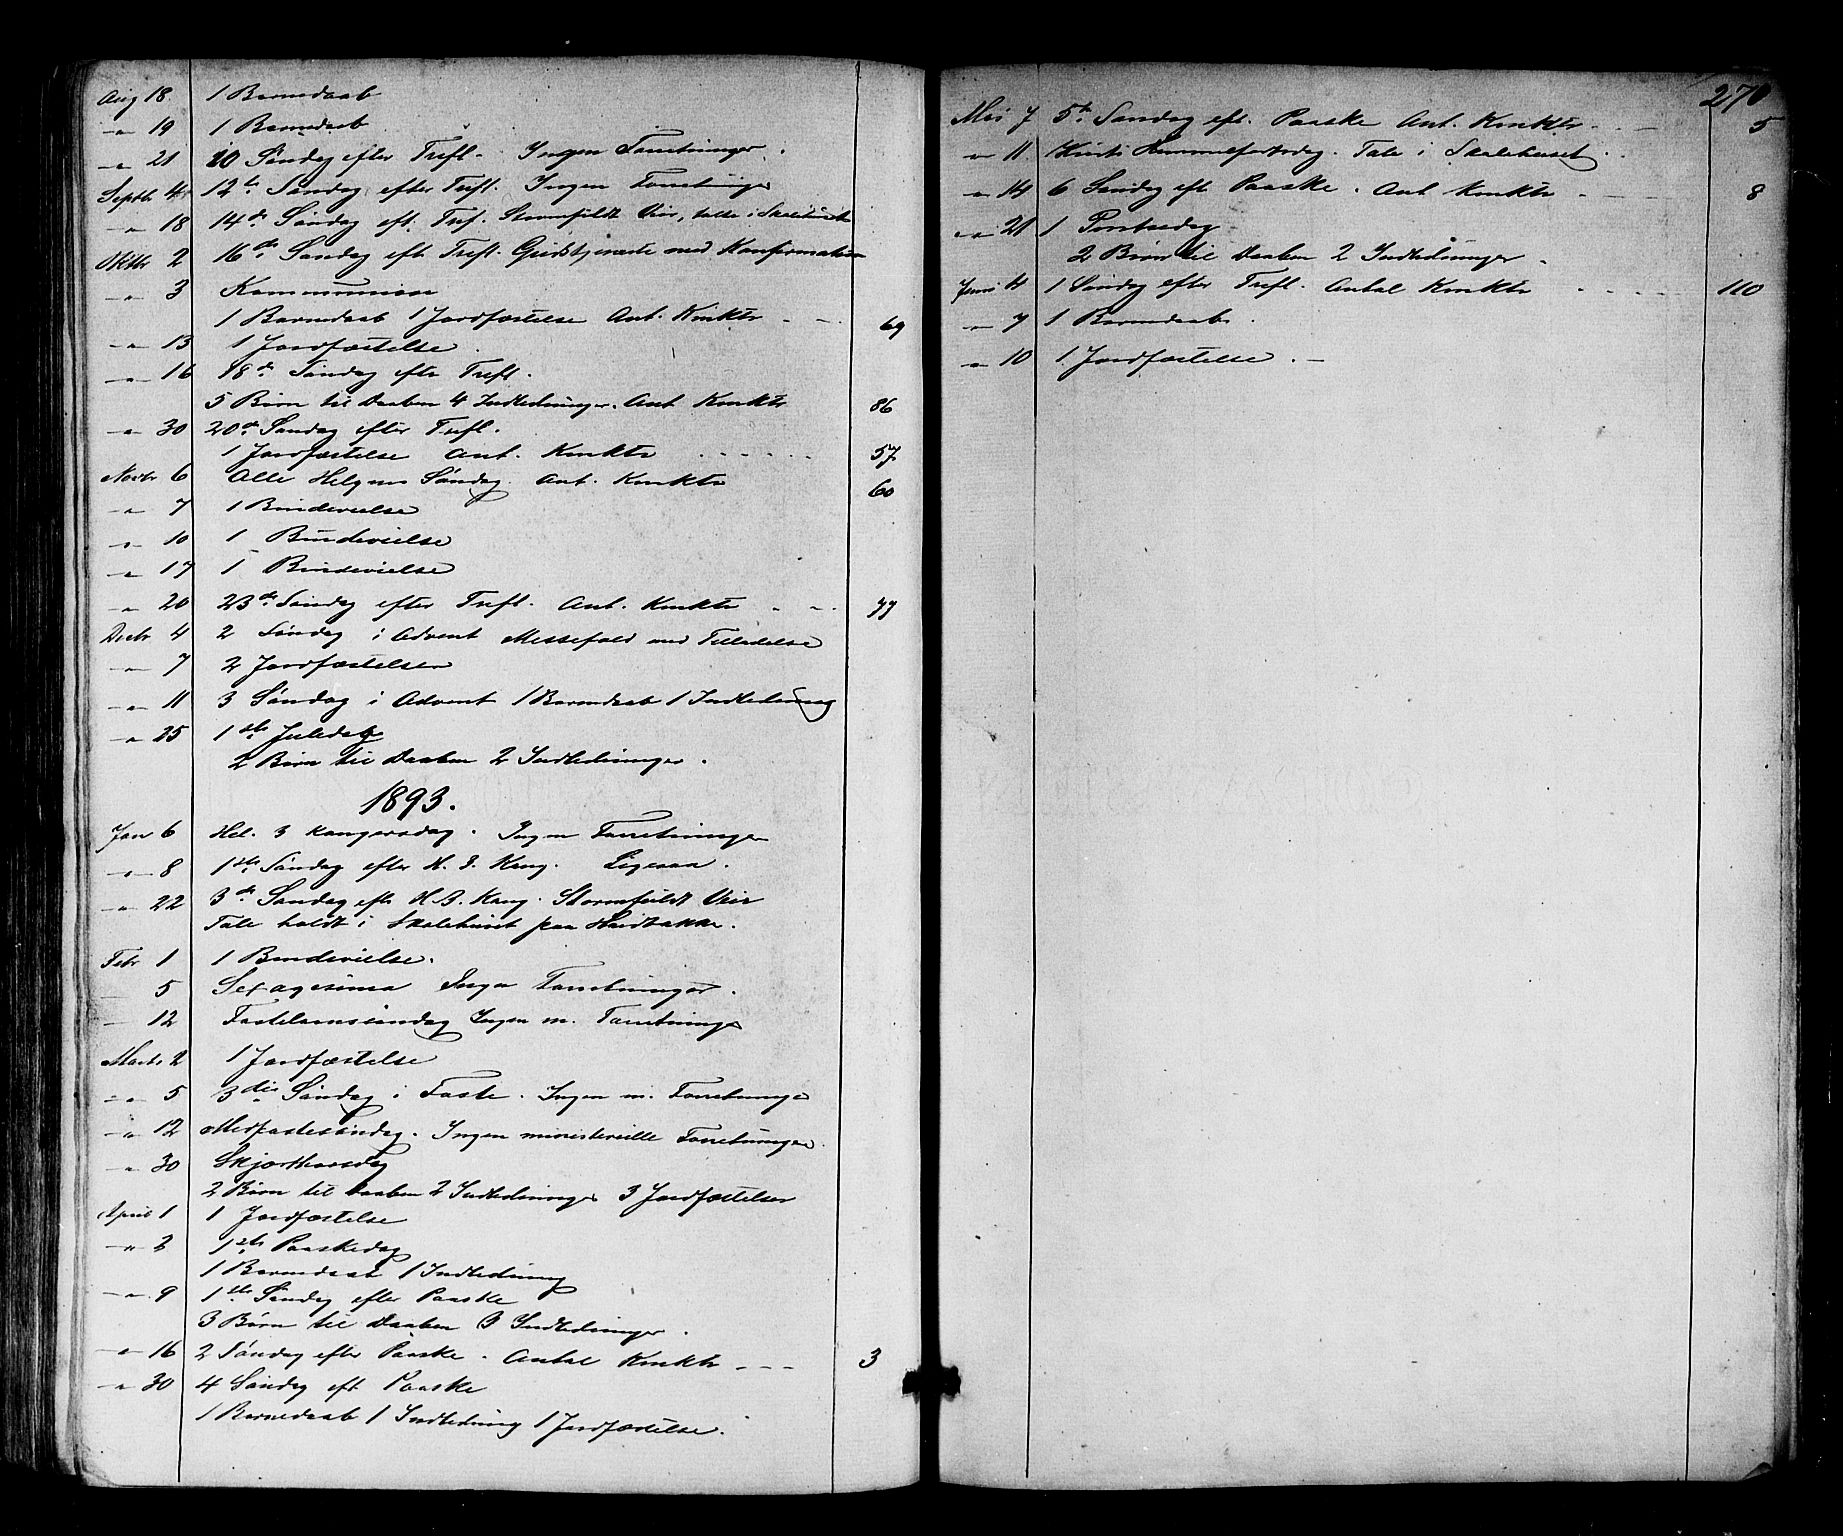 Aug 18. 1 Barnedaab
-"- 19 1 Barnedaab
-"- 21 10 Søndag efter Trefl. Ingen Forretninger.
Septbr 4 12te Søndag efter Trefl. Ingen Forretninger
-"- 18 14de Søndag eft. Tref. Stormfuldt Veir, talte i Skolehuset
Oktbr 2 16de Søndag eft Trefl. Gudstjeneste med Konfirmation
-"- 3 Kommunion
1 Barnedaab 1 Jordfæstelse Ant. Knktr - - 69
-"- 13 1 Jordfæstelse.
-"- 16 18de Søndag eftr Trefl.
5 Børn til Daaben 4 Indledninger. Ant Knktr 86
-"- 30 20de Søndag efter Trefl.
1 Jordfæstelse Ant. Knktr - - - - - 57
Novbr 6 Alle Helgens Søndag. Ant. Knktr 60
-"- 7 1 Brudevielse
-"- 10 1 Brudevielse
-"- 17 1 Brudevielse
-"- 20 23de Søndag efter Trefl. Ant. Knktr - - - 77
Decbr 4 2 Søndag i Advent Messefald med Tilladelse
-"- 7 2 Jordfæstelser
-"- 11 3 Søndag i Advent 1 Barnedaab 1 Indledning
-"- 25 1ste Juledag
2 Børn til Daaben 2 Indledninger.
1893.
Jan 6 Hel. 3 Kongersdag. Ingen Forretninger
-"- 8 1ste Søndag efter H. 3. Kong. Ligesaa.
-"- 22 3de Søndag eftr H. 3. Kong. Stormfuldt Veir
Tale holdt i Skolehuset paa
Febr 1 1 Brudevielse.
5 Sexagesima Ingen Forretninger.
12 Fastelavnssøndag Ingen m. Forretninger
Marts 2 1 Jordfæstelse
-"- 5 3die Søndag i Faste. Ingen m. Forretninger
-"- 12 Midfastesøndag. Ingen ministerielle Forretninger.
-"- 30 Skjærthorsdag
2 Børn til Daaben 2 Indledninger 3 Jordfæstelser
April 1 1 Jordfæstelse
-"- 2 1ste Paaskedag
1 Barnedaab 1 Indledning
-"- 9 1ste Søndag efter Paaske
3 Børn til Daaben 3 Indledninger.
-"- 16 2 Søndag efter Paaske. Antal Knktr - - - 3
-"- 30 4 Søndag eft Paaske
1 Barnedaab 1 Indledning 1 Jordfæstelse.
270
Mai 7 5te Søndag eft. Paaske Ant. Knktr - - - 5
-"- 11. Kristi Himmelfartsdag. Tale i Skolehuset.
-"- 14 6 Søndag eft Paaske. Ant Knktr - - - 8
-"- 21 1 Pintsedag
2 Børn til Daaben 2 Indledninger.
Juni 4 1 Søndag efter Trefl. Antal Knktr - - - - - 110
-"- 7 1 Barnedaab.
-"- 10 1. Jordfæstelse. -